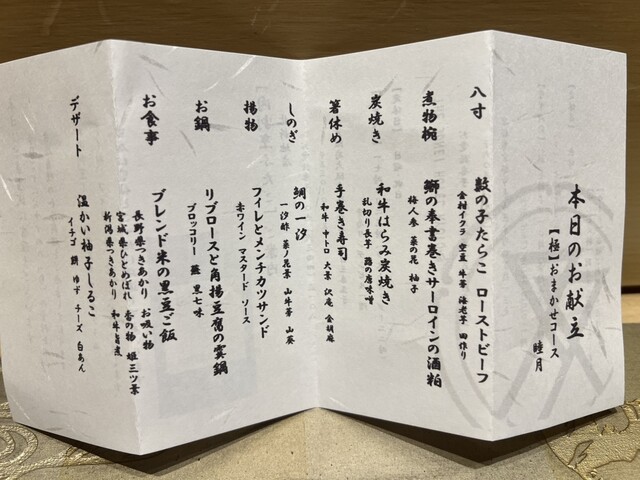 本日のお献立
【極】おまかせコース
睦月
八寸
数の子たらこ ローストビーフ
金柑イクラ 空豆 牛蒡 海老芋 田作り
煮物椀
鰤の奉書巻きサーロインの酒粕
梅人参 菜の花 柚子
炭焼き
和牛はらみ炭焼き
乱切り長芋 蕗の唐味噌
箸休め
手巻き寿司
和牛 中トロ 大葉 沢庵 金胡麻
しのぎ
鯛の一汐
一汐酢 菜ノ花葉 山牛蒡 山葵
揚物
フィレとメンチカツサンド
赤ワイン マスタード ソース
お鍋
リブロースと角揚豆腐の雲鍋
ブロッコリー 黒七味
お食事
ブレンド米の黒豆ご飯
長野県つきあかり お吸い物
宮城県ひとめぼれ 香の物 姫三ツ葉
新潟県つきあかり 和牛旨煮
デザート
温かい柚子しるこ
イチゴ 餅 ゆず チーズ 白あん